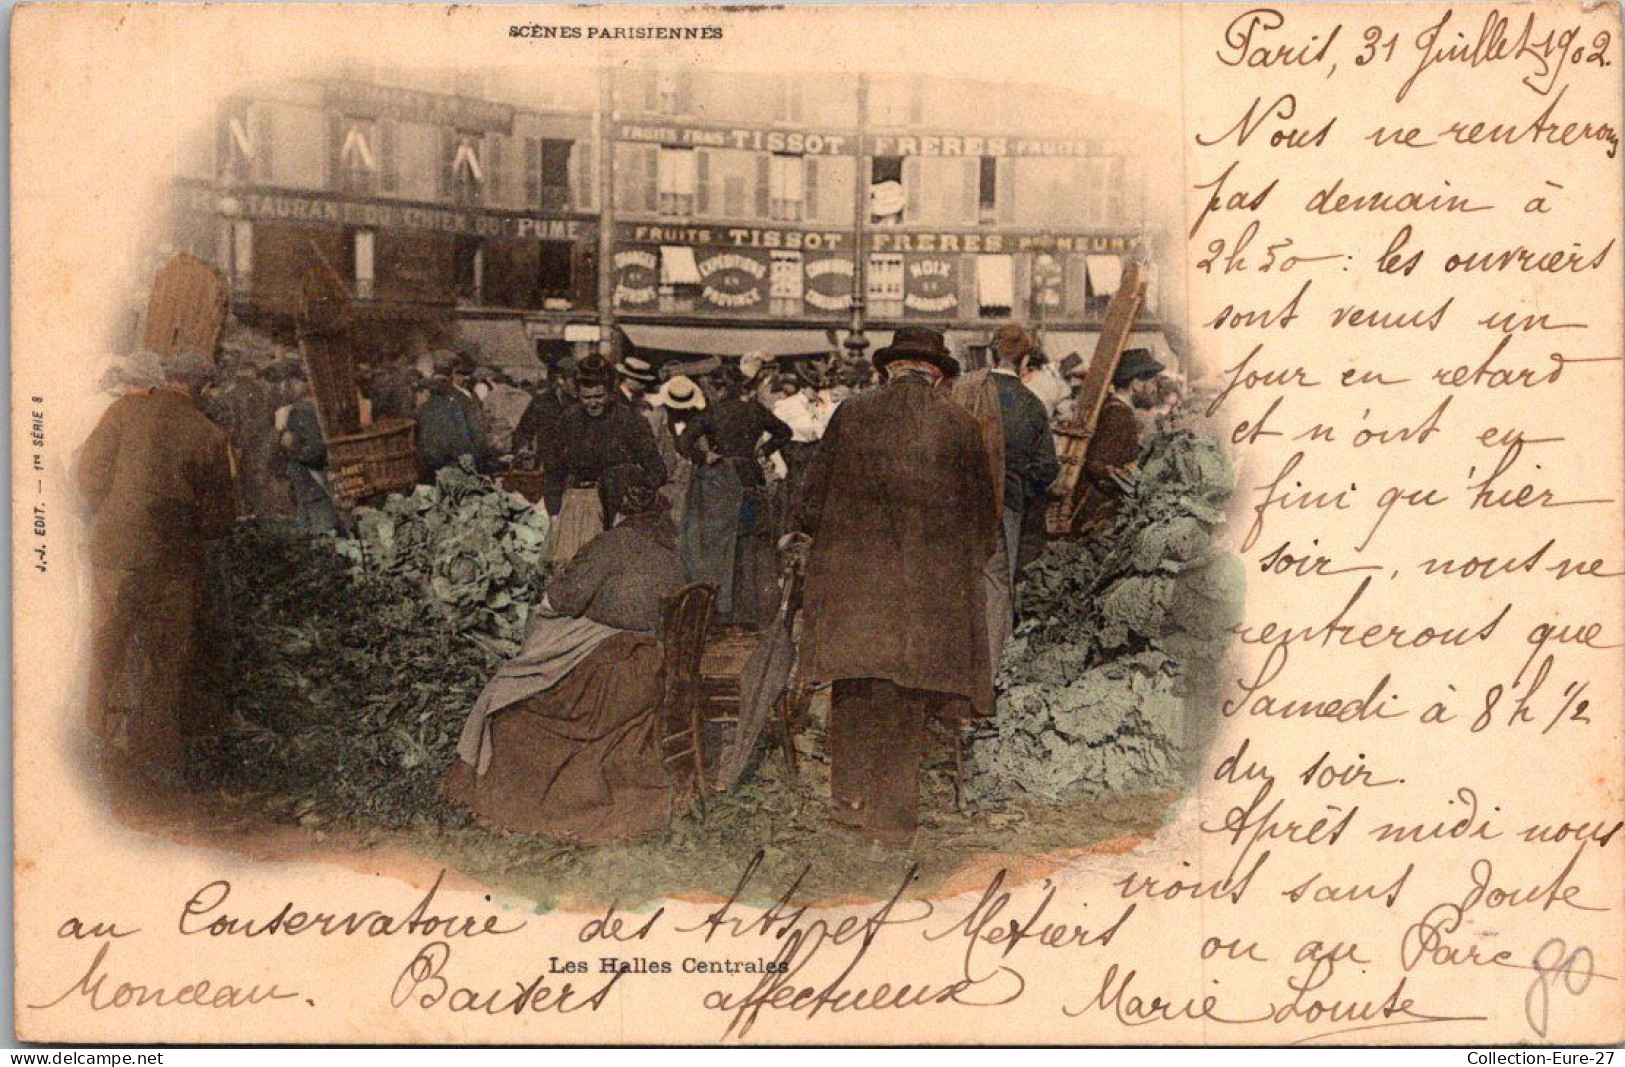 SCÈNES PARISIENNES
Paris, 31 Juillet 1902.
Nous ne rentrerons
pas demain à
2h 50 : les ouvriers
sont venus un
jour en retard
et n'ont en
fini qu'hier
soir, nous ne
rentrerons que
Samedi à 8h 1/2
du soir.
Après midi nous
irons sans doute
au Conservatoire des Arts et Métiers
ou au Parc
Monceau. Baisers affectueux Marie Louise
80
Les Halles Centrales
J.-J. EDIT. — 1re SÉRIE 8
FRUITS FRAIS TISSOT FRERES FRUITS
RESTAURANT DU CHIEN QUI FUME
FRUITS TISSOT FRERES PRIMEURS
EXPEDITIONS EN PROVINCE
NOIX
Collection-Eure-27